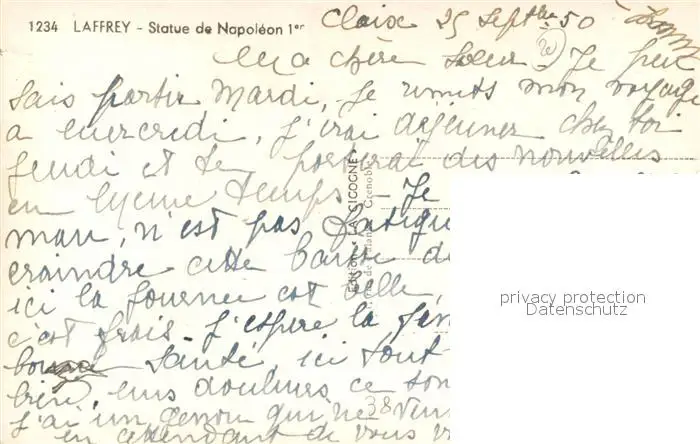 1234 LAFFREY - Statue de Napoléon 1er
Claix 25 Septbre 50
Ma chère Soeur Je peux
Sais partir Mardi, Je remets mon voyage
a Mercredi, J'irai déjeuner chez toi
Jeudi et te porterai des nouvelles
en même temps - Je
man, n'est pas fatigu
craindre cette ba de
ici la journée est belle,
c'est frais. J'espère la fam
bonne santé, ici tout
bien, mes douleurs ce son
J'ai un genou qui ne veu
en attendant de vous v
EDITIONS "LA CIGOGNE"
Grenoble
38
privacy protection
Datenschutz